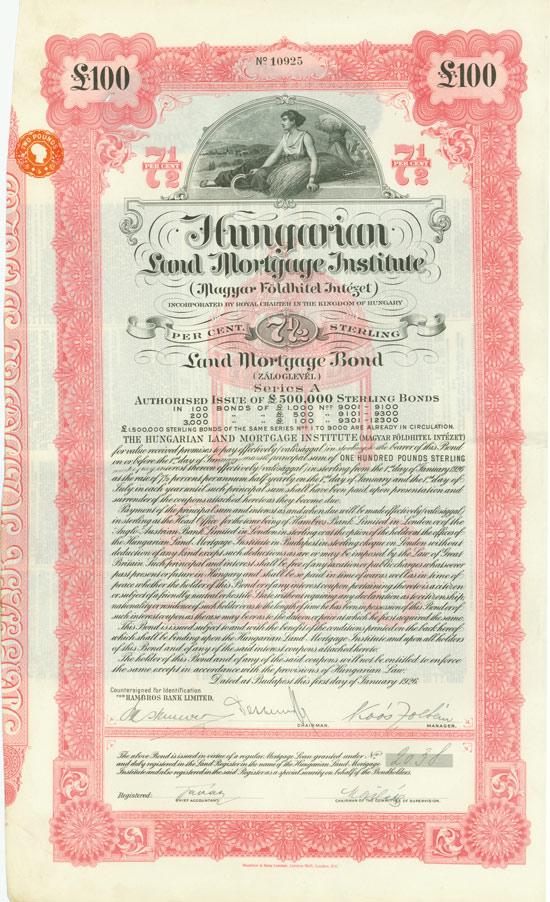 Nº 10925
£100
£100
TWO POUNDS
7½ PER CENT.
7½ PER CENT.
Hungarian
Land Mortgage Institute
(Magyar Földhitel Intézet)
INCORPORATED BY ROYAL CHARTER IN THE KINGDOM OF HUNGARY
PER CENT. 7½ STERLING
Land Mortgage Bond
(ZÁLOGLEVÉL)
Series A
AUTHORISED ISSUE OF £500,000 STERLING BONDS
IN 100 BONDS OF £1,000 Nos 9001 - 9100
200 " " £ 500 " 9101 - 9300
3,000 " " £ 100 " 9301 - 12300
£1,500,000 STERLING BONDS OF THE SAME SERIES Nos 1 TO 9000 ARE ALREADY IN CIRCULATION.
THE HUNGARIAN LAND MORTGAGE INSTITUTE (MAGYAR FÖLDHITEL INTÉZET)
for value received promises to pay effectively (valósággal) in sterling to the bearer of this Bond
on or before the 1st day of January the principal sum of ONE HUNDRED POUNDS STERLING
interest thereon effectively (valósággal) in sterling from the 1st day of January 1926
at the rate of 7½ percent per annum half yearly on the 1st day of January and the 1st day of
July in each year until such principal sum shall have been paid, upon presentation and
surrender of the coupons attached hereto as they become due.
Payment of the principal sum and interest as and when due will be made effectively (valósággal)
in sterling at the Head Office for the time being of Hambros Bank Limited in London or of the
Anglo-Austrian Bank Limited in London in sterling or at the option of the holder at the offices of
the Hungarian Land Mortgage Institute in Budapest in sterling cheque on London without
deduction of any kind except such deductions as are or may be imposed by the Law of Great
Britain. Such principal and interest shall be free of any taxation or public charges whatsoever
past present or future in Hungary and shall be so paid in time of war as well as in time of
peace whether the holder of this Bond or of any interest coupon pertaining thereto is a citizen
or subject of a friendly neutral or hostile State without requiring any declaration as to citizenship
nationality or residence of such holder or as to the length of time he has been in possession of this Bond or of
such interest coupon as the case may be or as to the date on or place at which he first acquired the same.
This Bond is issued subject to and with the benefit of the conditions printed on the back hereof
which shall be binding upon the Hungarian Land Mortgage Institute and upon all holders
of this Bond and of any of the said interest coupons attached hereto.
The holder of this Bond and of any of the said coupons will not be entitled to enforce
the same except in accordance with the provisions of Hungarian Law.
Dated at Budapest this first day of January 1926.
Countersigned for Identification
FOR HAMBROS BANK LIMITED.
Koós Zoltán
CHAIRMAN.
MANAGER.
The above Bond is issued in virtue of a regular Mortgage Loan granted under Nº 2038
and duly registered in the Land Register in the name of the Hungarian Land Mortgage
Institute and also registered in the said Register as a special security on behalf of the Bondholders.
Registered:
CHIEF ACCOUNTANT.
CHAIRMAN OF THE COMMITTEE OF SUPERVISION.